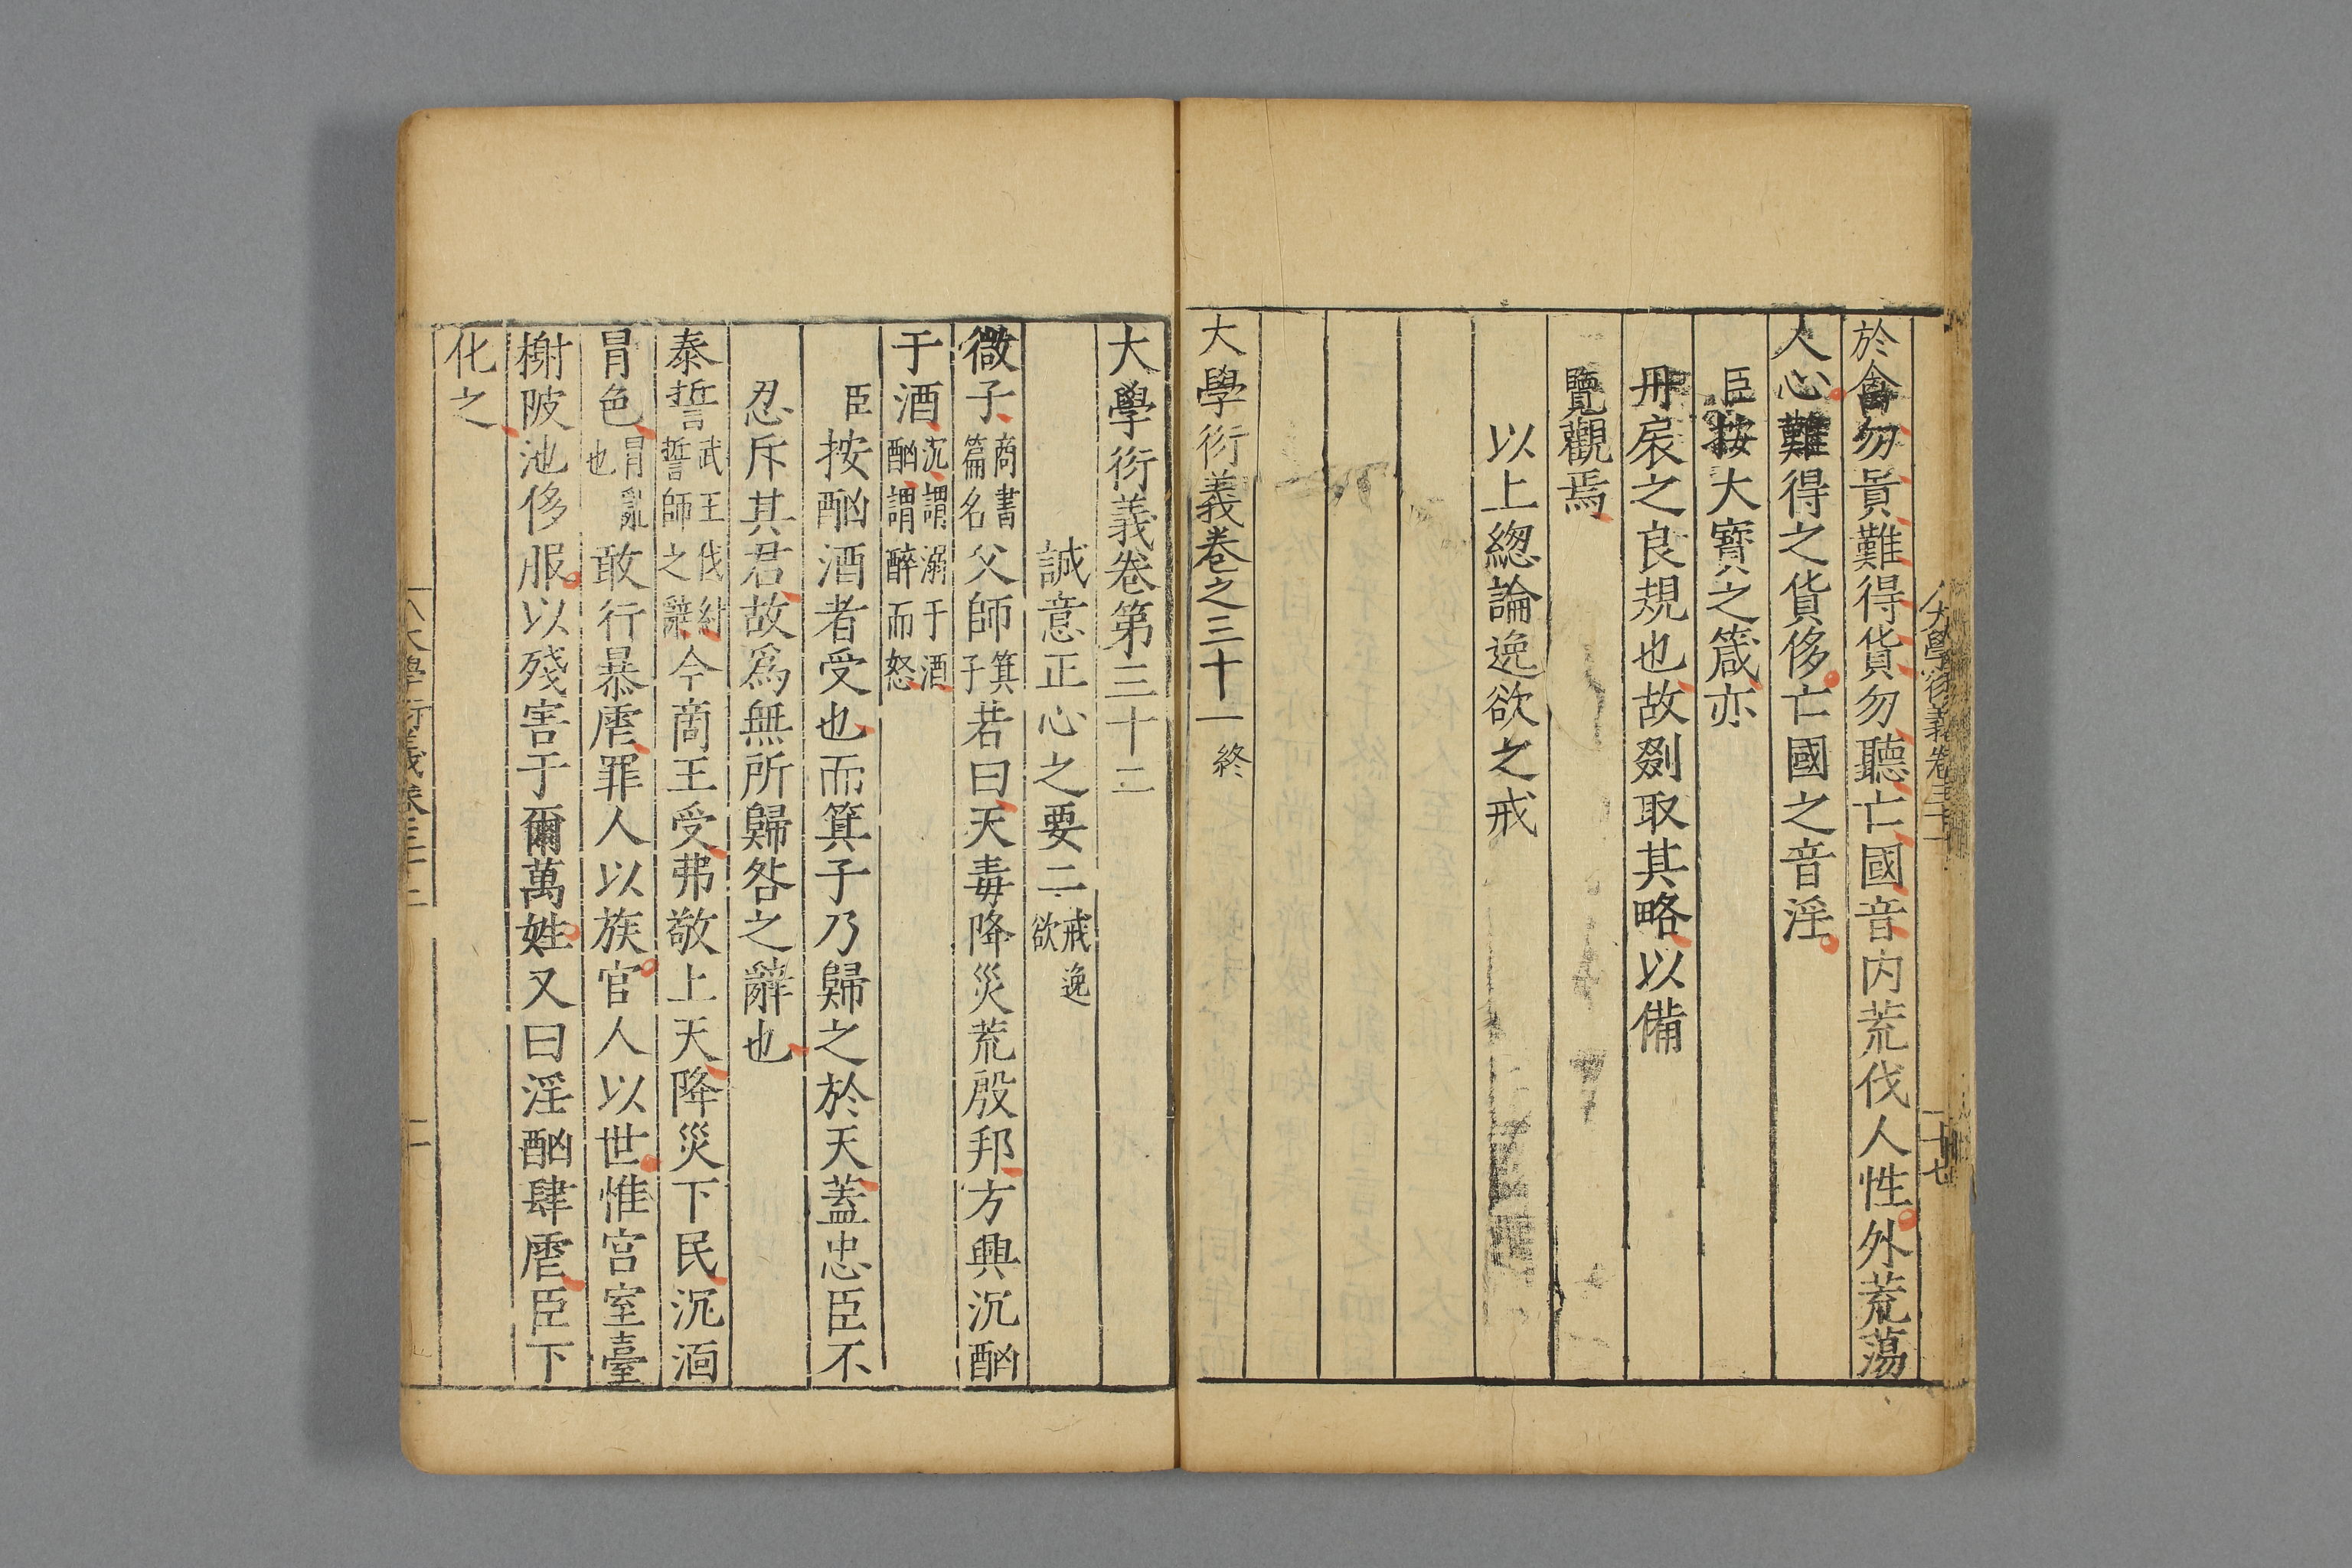 於禽勿貴難得貨勿聽亡國音内荒伐人性外荒蕩
人心難得之貨侈亡國之音淫
臣按大寶之箴亦
丹扆之良規也故剟取其略以備
覽觀焉
以上緫論逸欲之戒
大學衍義卷之三十一終
大學衍義卷第三十二
誠意正心之要二戒逸欲
微子商書篇名父師箕子若曰天毒降災荒殷邦方興沉酗
于酒沉謂溺于酒酗謂醉而怒
臣按酗酒者受也而箕子乃歸之於天蓋忠臣不
忍斥其君故爲無所歸咎之辭也
泰誓武王伐紂誓師之辭今商王受弗敬上天降災下民沉湎
冐色冐亂也敢行暴虐罪人以族官人以世惟宫室臺
榭陂池侈服以殘害于爾萬姓又曰淫酗肆虐臣下
化之